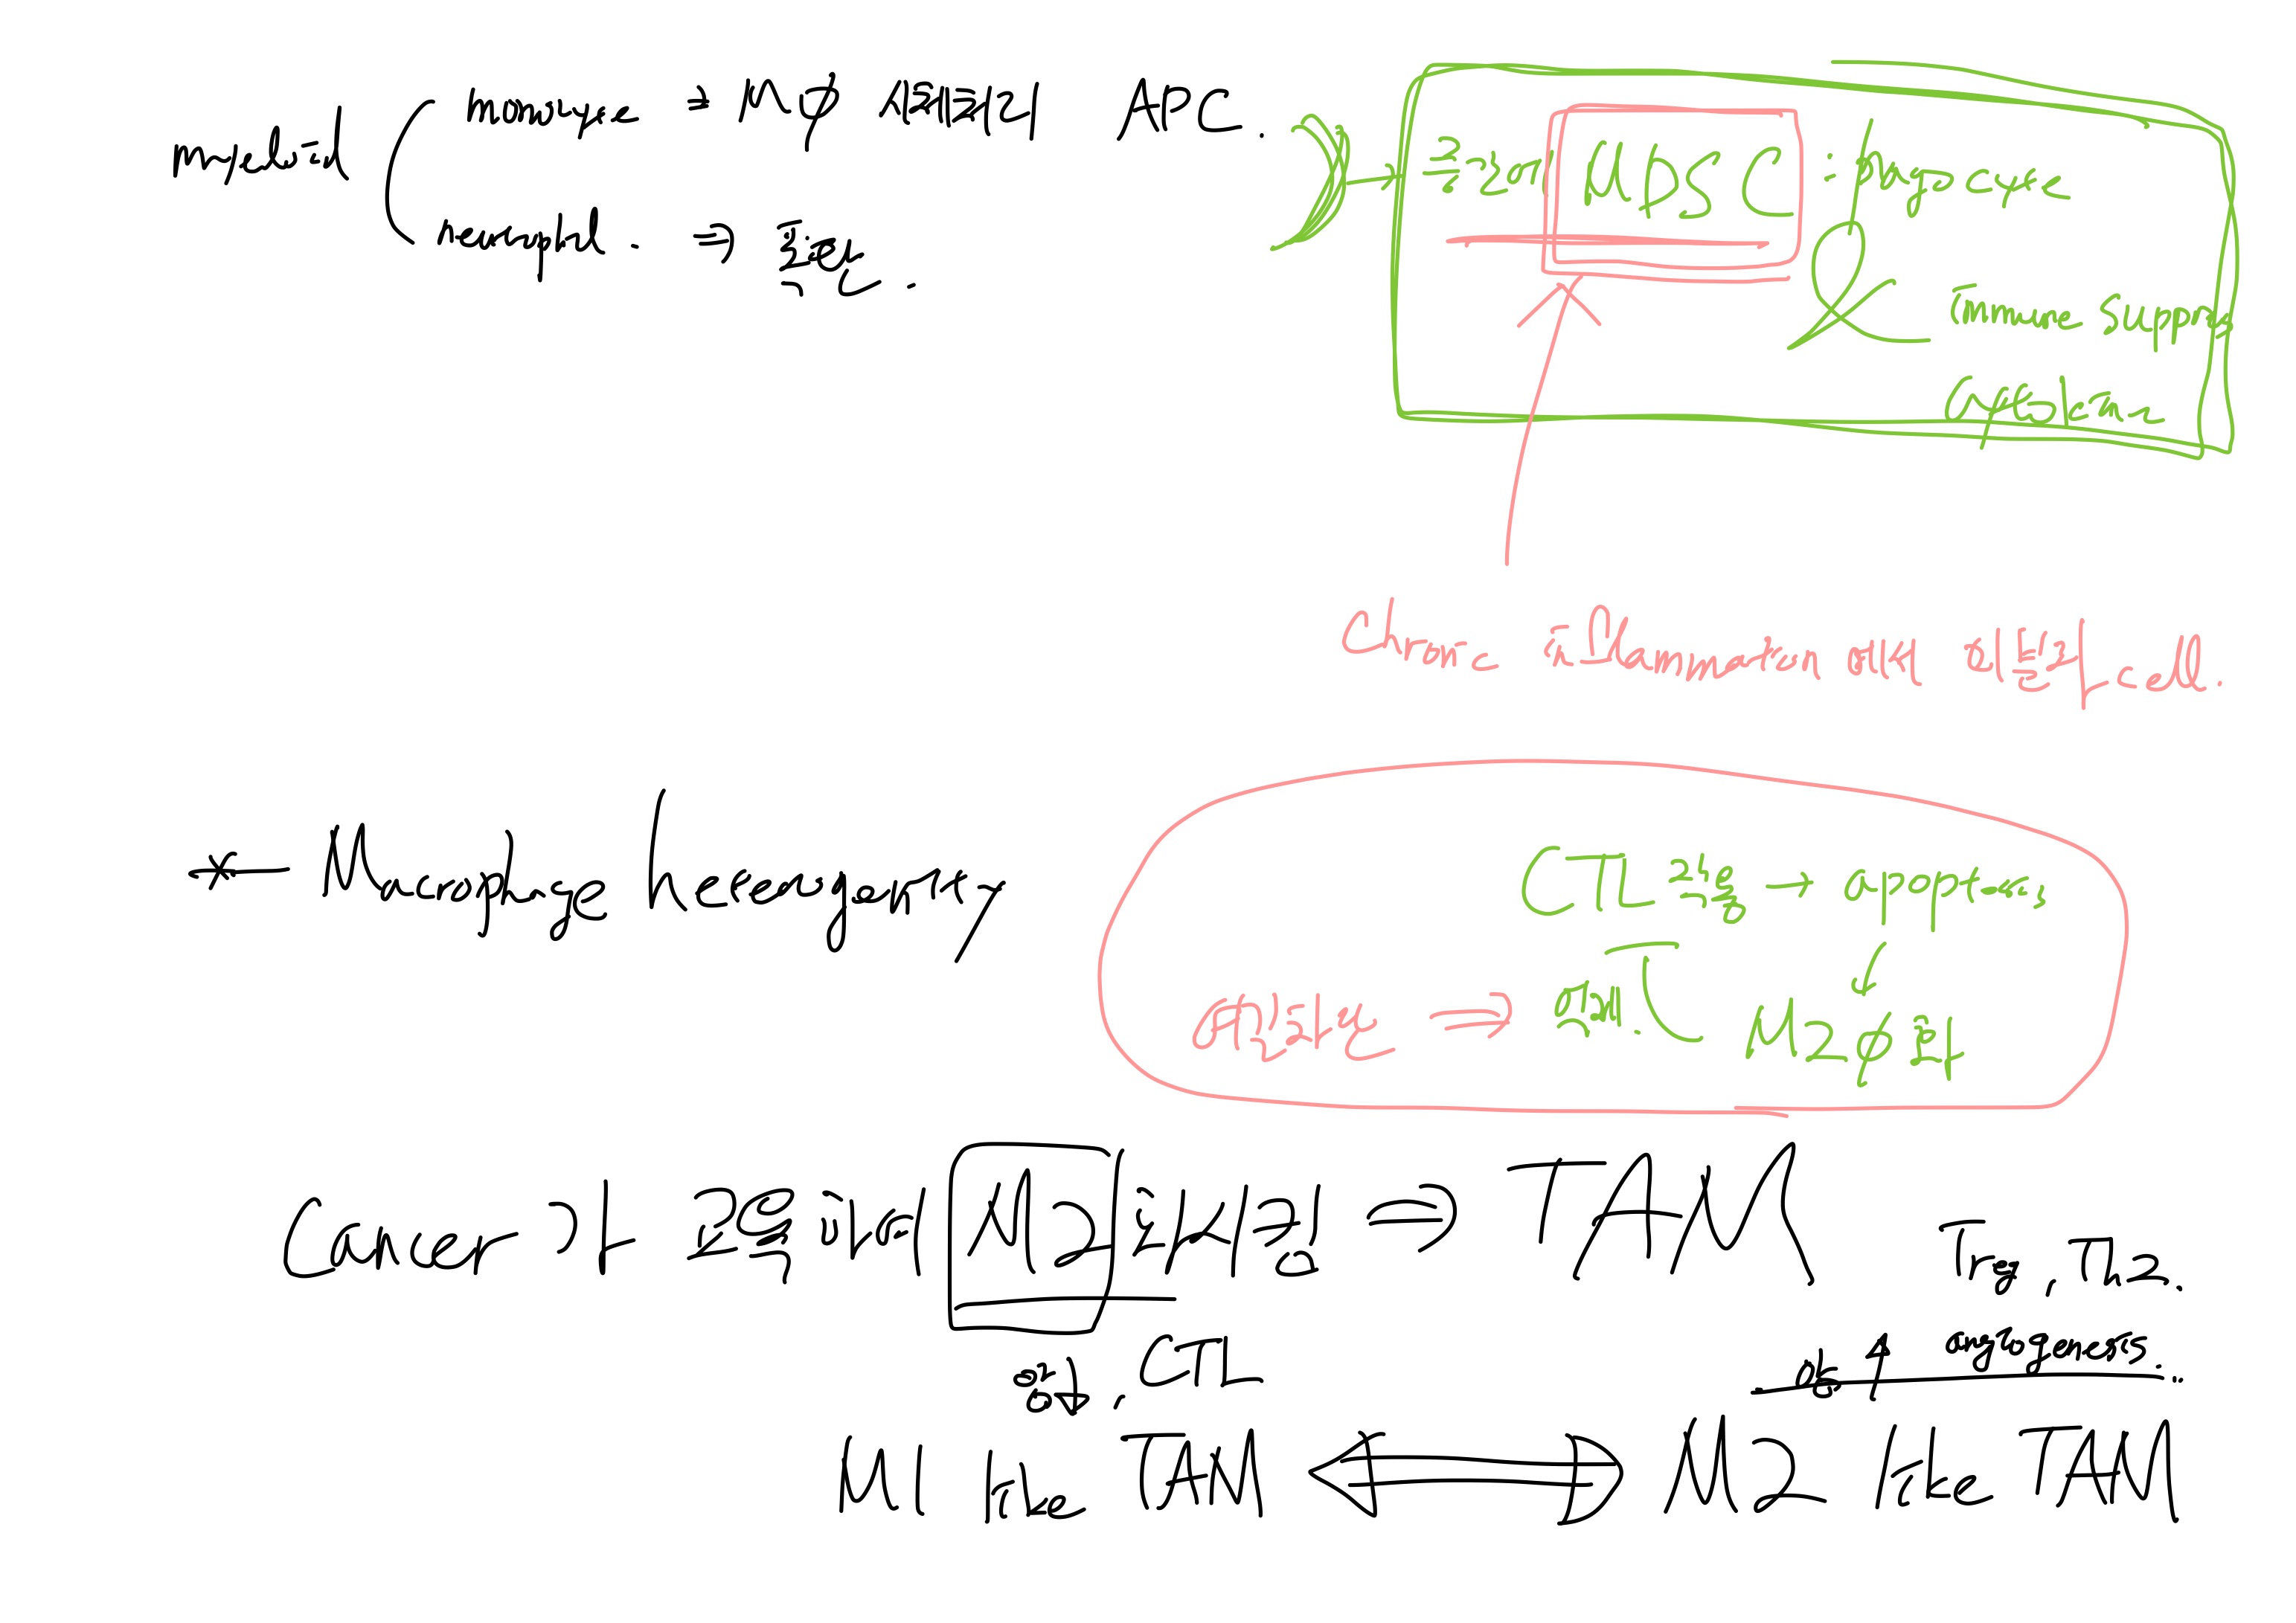 myeloid
monocyte ⇒ Mφ 사촌격의 APC.
neutrophil. ⇒ 호중구.
MDSC : phagocyte
immune suppress
cytokine
Chronic inflammation 에서 cell.
* Macrophage heterogeneity
CTL 작용 → apoptosis
억제. M2φ화
Cancer가 교육하여 M2화시킴 ⇒ TAM
Treg, Th2.
암↓, CTL
암↑ angiogenesis.
M1 like TAM ⇔ M2 like TAM